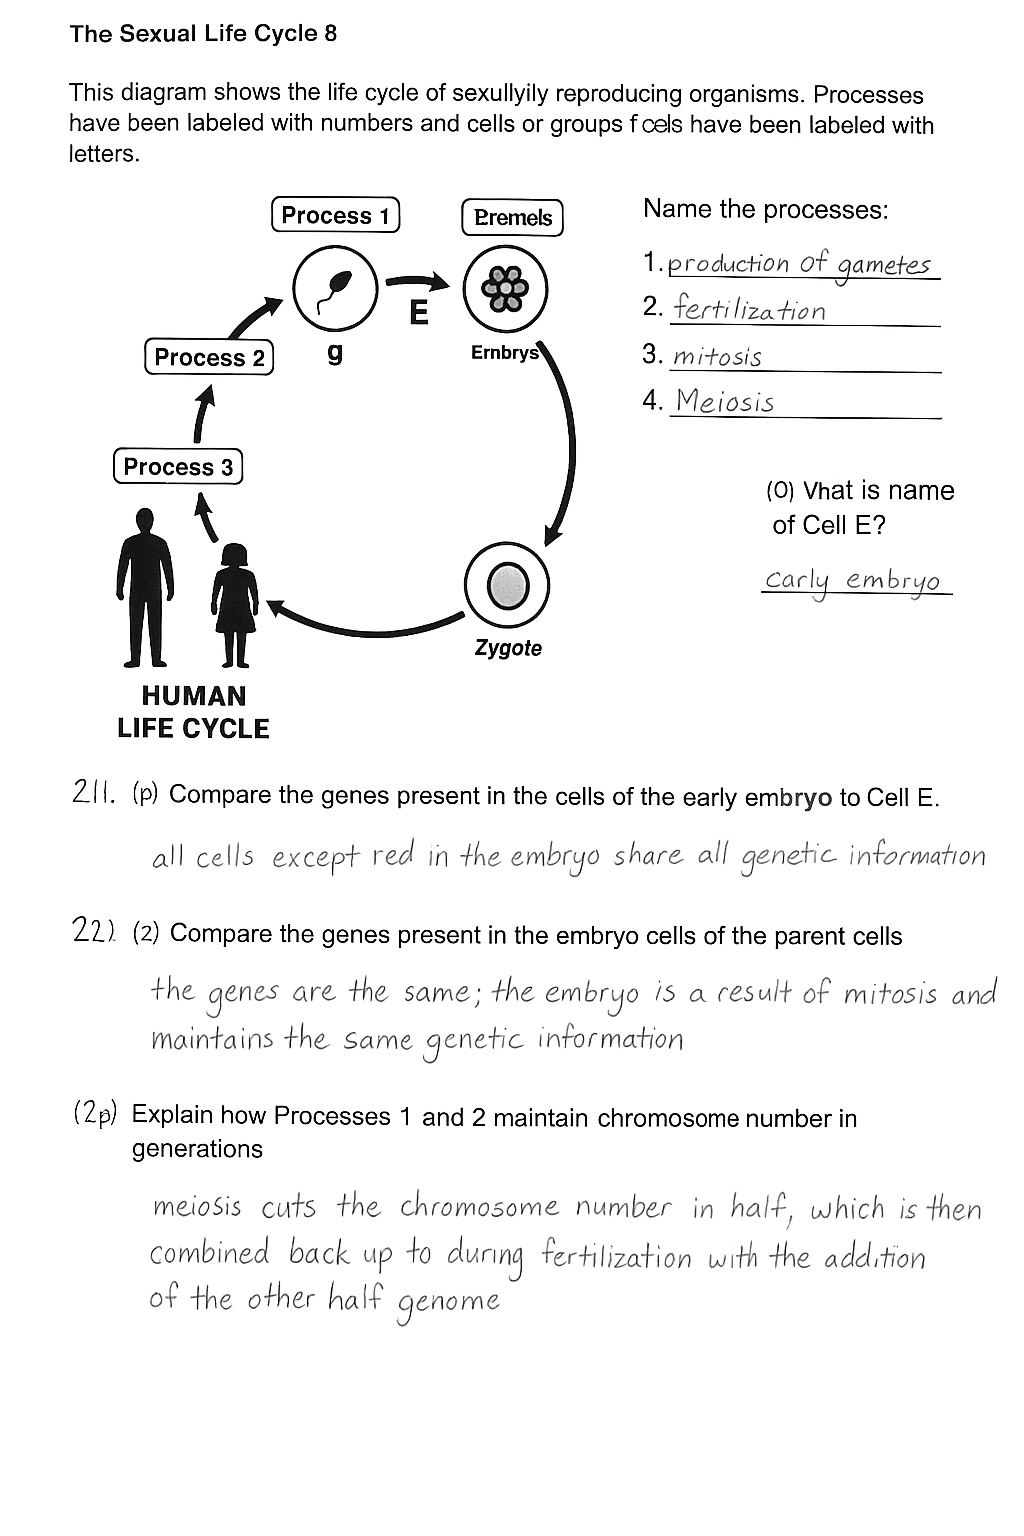 The Sexual Life Cycle 8
This diagram shows the life cycle of sexullyily reproducing organisms. Processes
have been labeled with numbers and cells or groups f cels have been labeled with
letters.
Process 1
Bremels
E
g
Ernbrys
Process 2
Process 3
Zygote
HUMAN
LIFE CYCLE
Name the processes:
1. production of gametes
2. fertilization
3. mitosis
4. Meiosis
(0) Vhat is name
of Cell E?
carly embryo
211. (p) Compare the genes present in the cells of the early embryo to Cell E.
all cells except red in the embryo share all genetic information
22). (2) Compare the genes present in the embryo cells of the parent cells
the genes are the same; the embryo is a result of mitosis and
maintains the same genetic information
(2p) Explain how Processes 1 and 2 maintain chromosome number in
generations
meiosis cuts the chromosome number in half, which is then
combined back up to during fertilization with the addition
of the other half genome